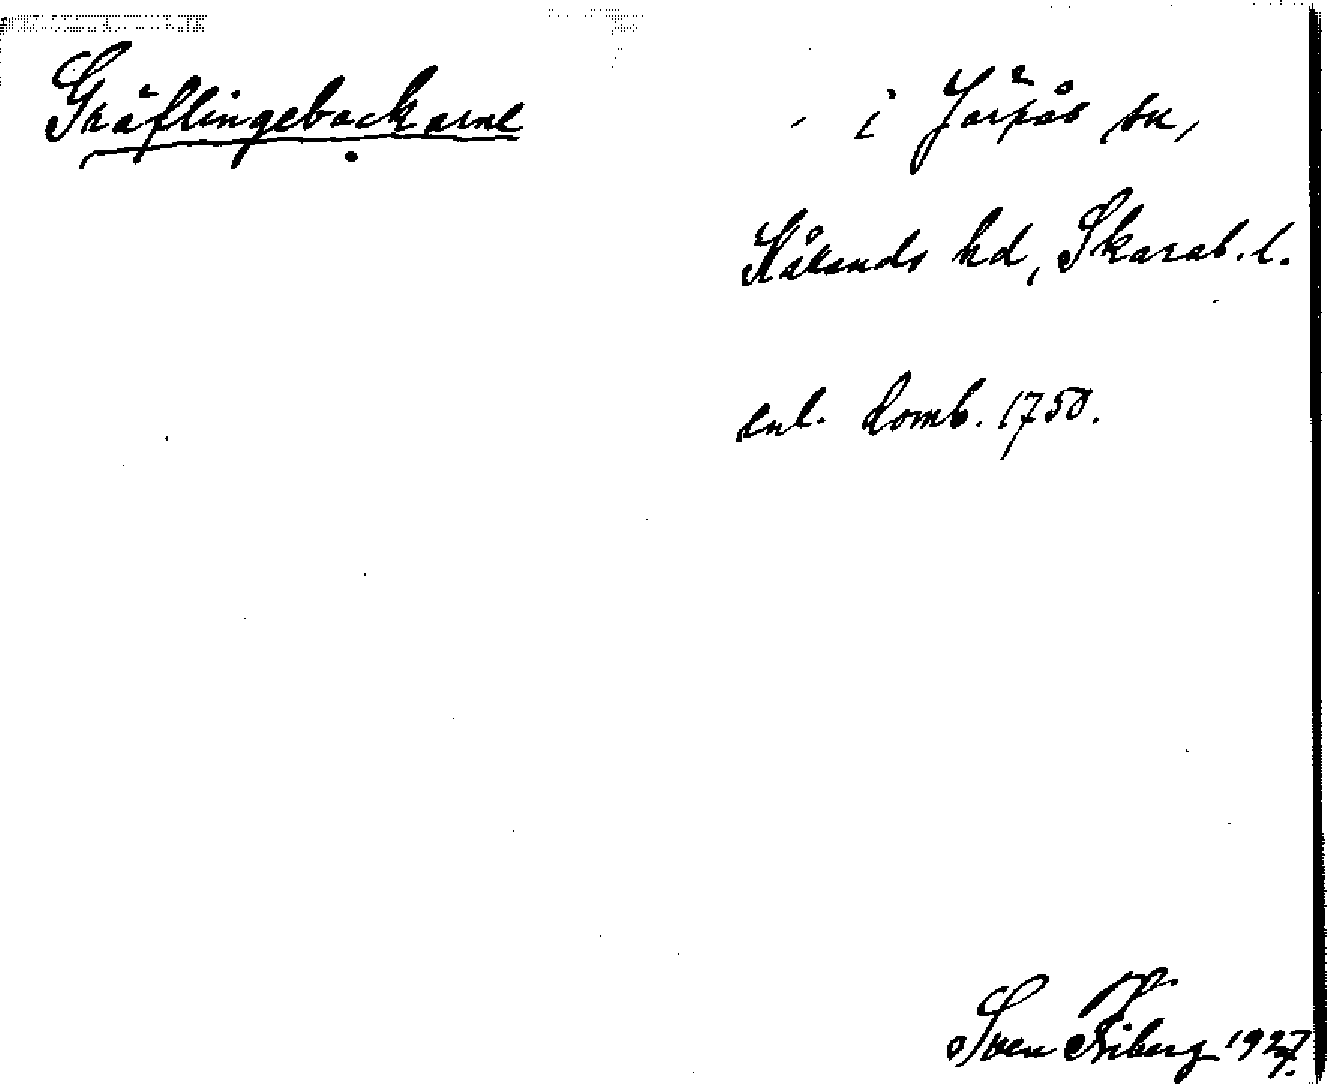 Gräflingebackarne i Järpås sn,
Kålands hd, Skarab. l.
enl. Lomb. 1750.
Sven Friberg 1927.